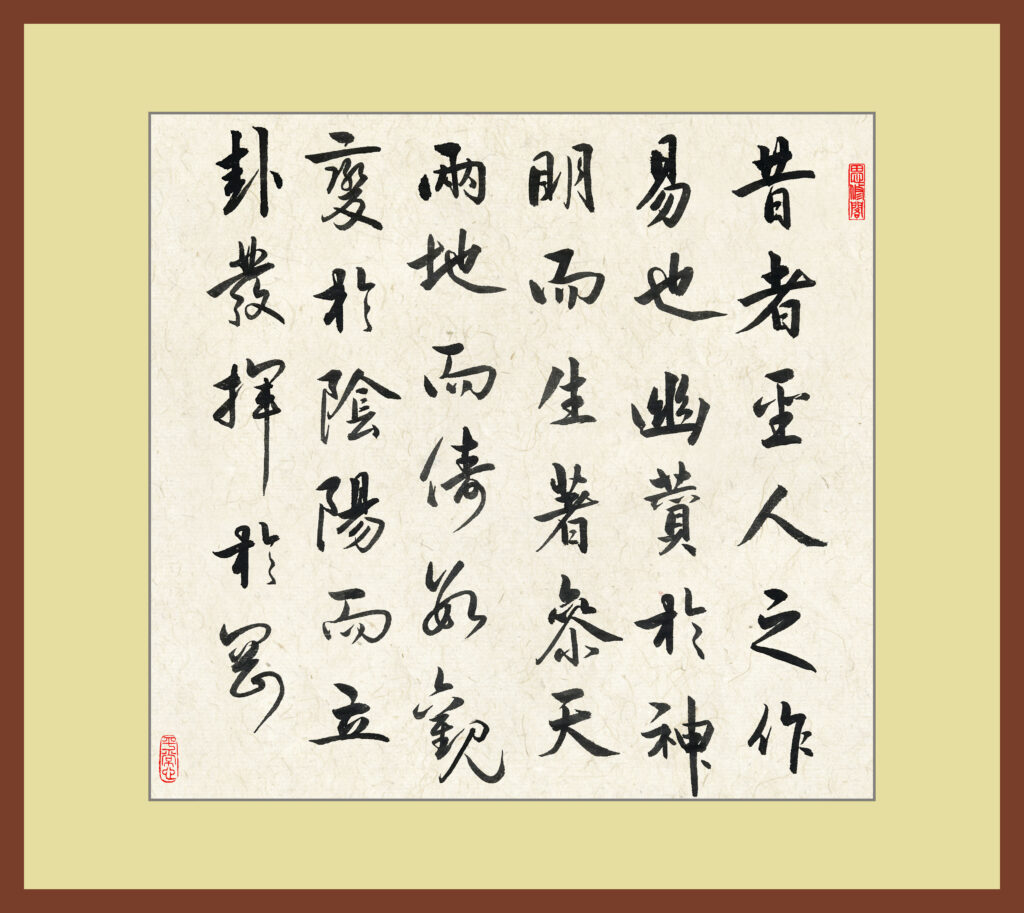 思修閣
昔者聖人之作
易也幽贊於神
明而生蓍參天
兩地而倚數觀
變於陰陽而立
卦發揮於剛
平常心